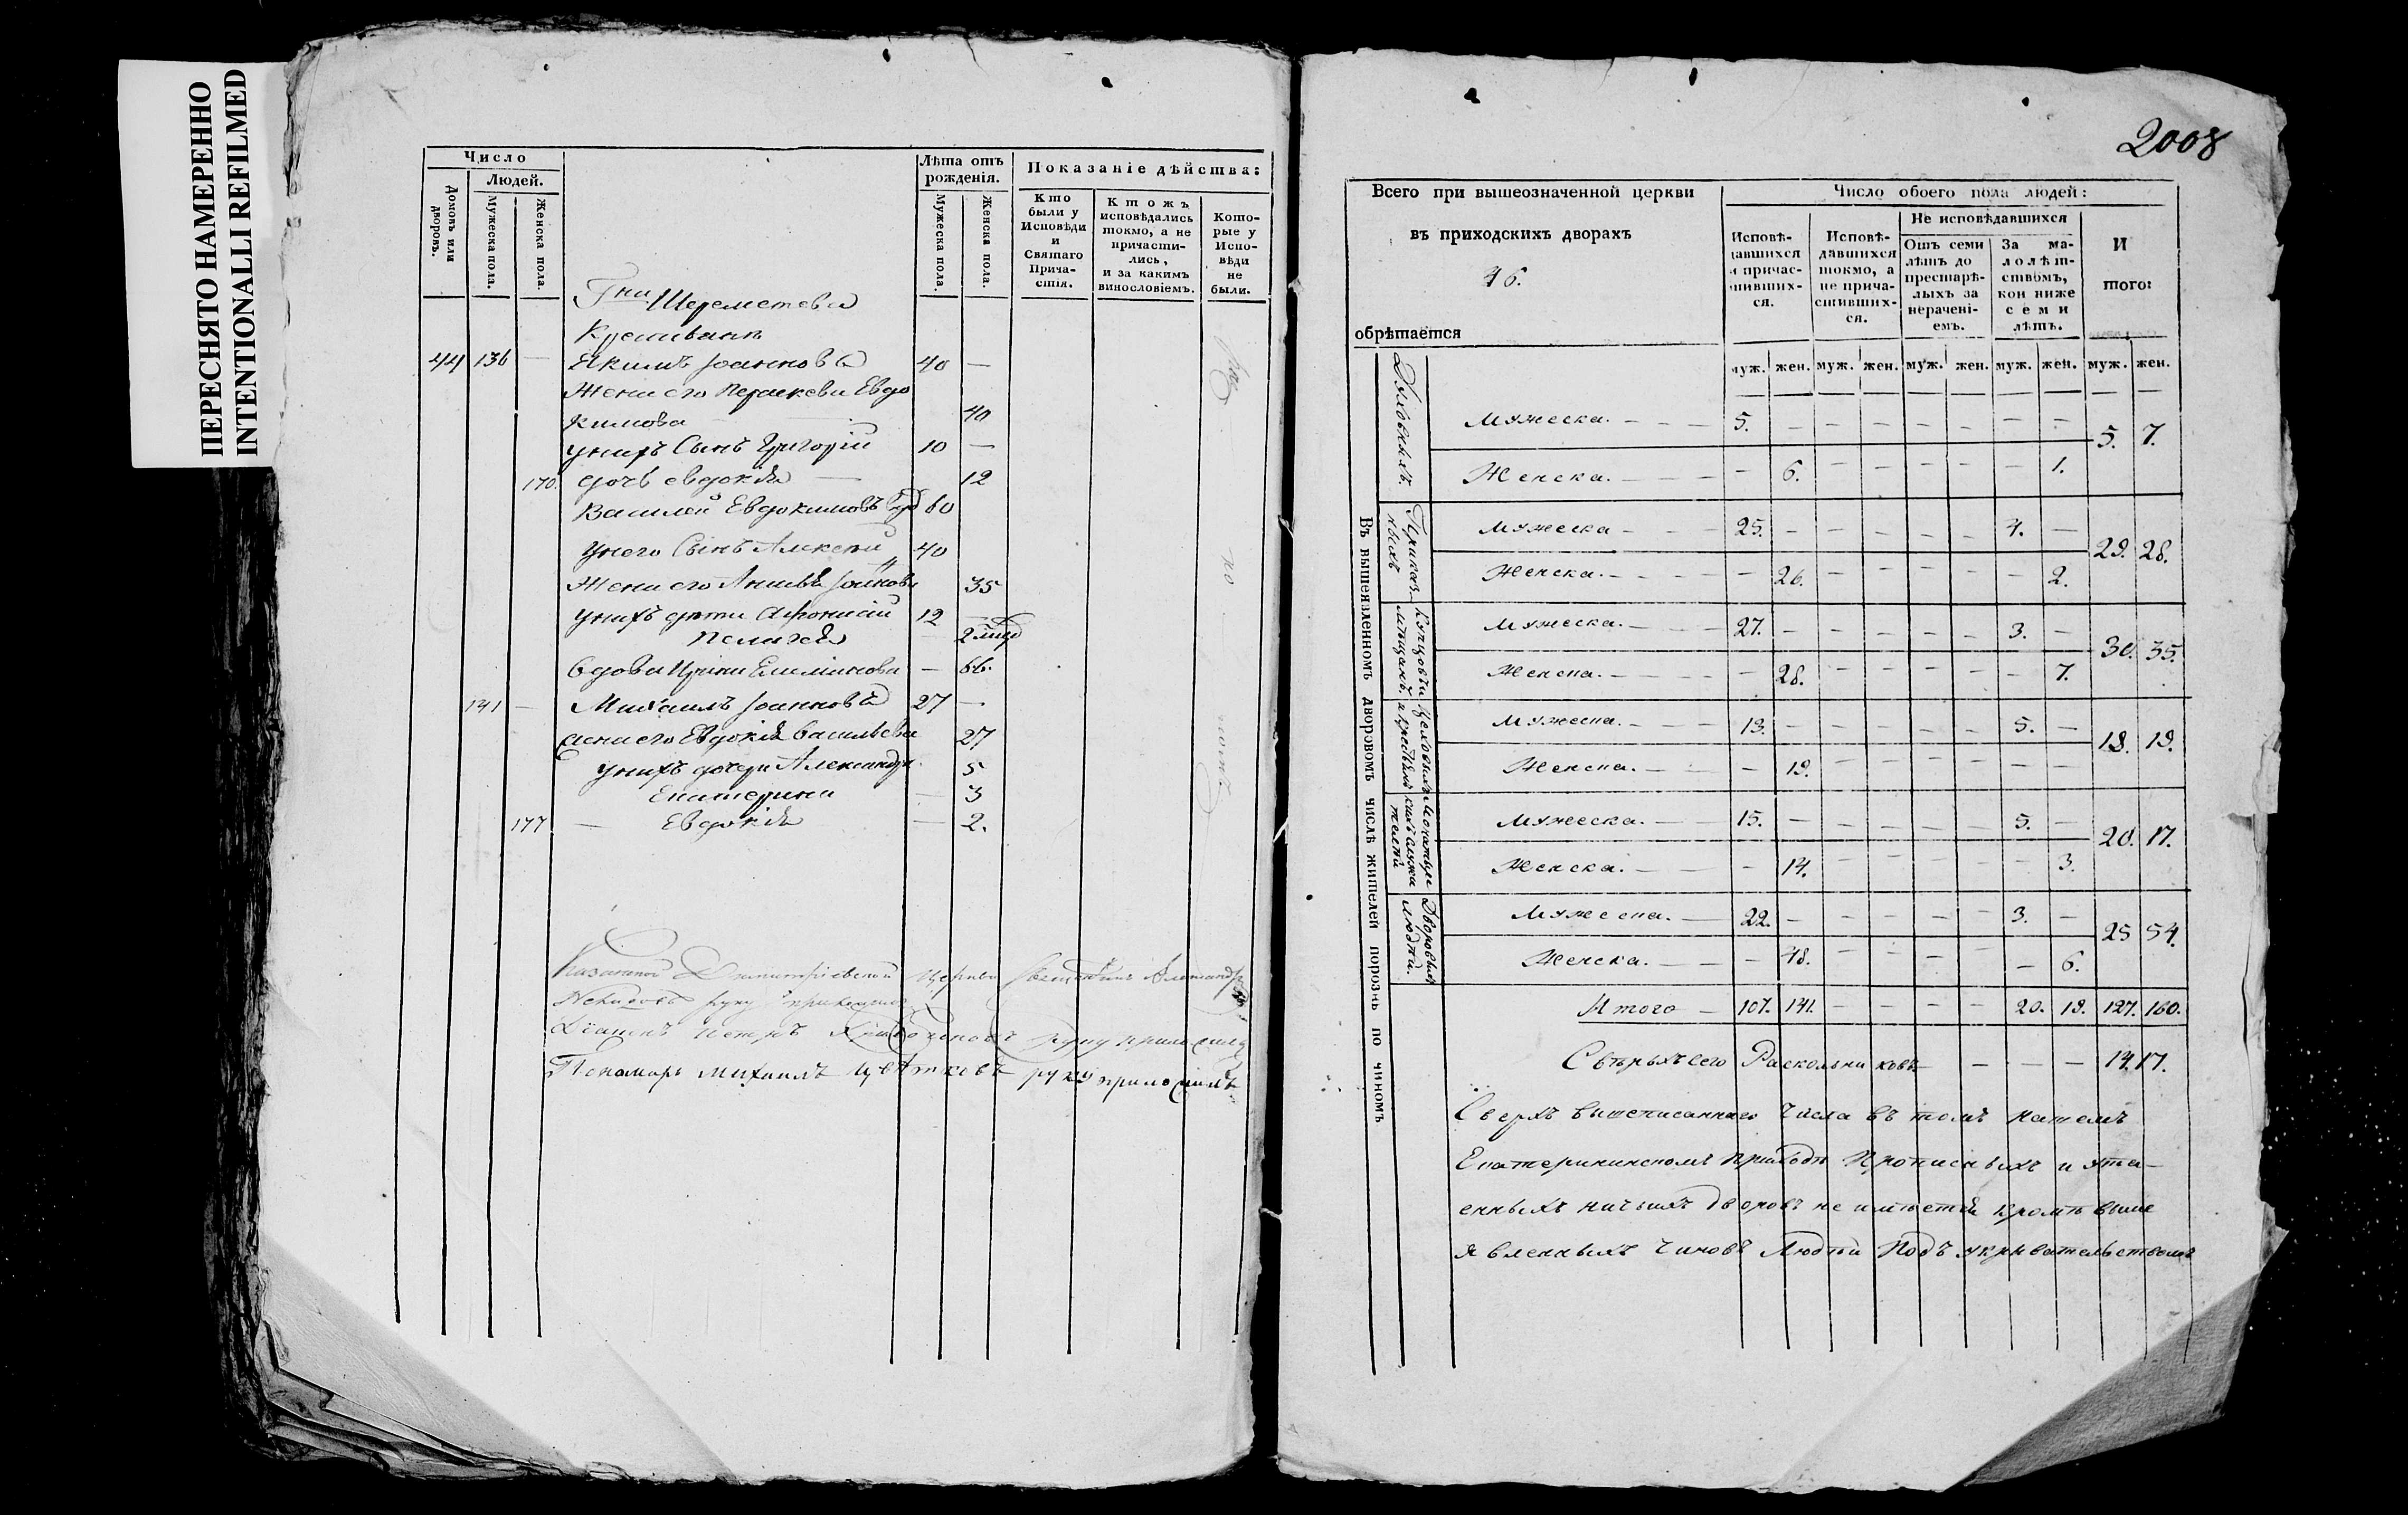 ПЕРЕСНЯТО НАМЕРЕННО
INTENTIONALLI REFILMED
Число
Людей.
Домовъ или дворовъ.
Мужеска пола.
Женска пола.
Лѣта отъ рожденія.
Мужеска пола.
Женска пола.
Показаніе дѣйства:
Кто были у Исповѣди и Святаго Прича-стія.
Ктожъ исповѣдались токмо, а не причасти-лись, и за какимъ винословіемъ.
Кото-рые у Испо-вѣди не были.
Гжи Шереметева
44 136 — Якимъ Іоанновъ 40 —
Жена его Параскева Евдо
кимова 40
у нихъ Сынъ Григорій 10 —
170. дочь евдокія — 12
Василей Евдокимовъ вдо 60
У него Сынъ Алексѣй 40
Жена его Анна 35
у нихъ дѣти 12 —
Пелагея
вдова Ирина — 66.
141 — Михаилъ Іоанновъ 27 —
жена его Евдокія Васильева 27
у нихъ дочери Александра 5
Екатерина — 3
177 — Евдокія — 2.
Димитріевской Церкви Священникъ Александръ
руку приложилъ
Діаконъ Петръ руку приложилъ
Пономарь Михаилъ Цвѣтковъ руку приложилъ
2008
Всего при вышеозначенной церкви
въ приходскихъ дворахъ
46.
обрѣтается
Число обоего пола людей:
Исповѣ-давшихся и причас-тивших-ся.
Исповѣ-давшихся токмо, а не прича-стивших-ся.
Не исповѣдавшихся
Отъ семи лѣтъ до престарѣ-лыхъ за нерачені-емъ.
За ма-лолѣт-ствомъ, кои ниже семи лѣтъ.
И того:
муж. жен. муж. жен. муж. жен. муж. жен. муж. жен.
Въ вышеявленномъ дворовомъ числѣ жителей порознь по чиномъ
Духовныхъ.
Мужеска. — — — 5. — — — — — — — 5. 7.
Женска. — — — — 6. — — — — — 1.
Приказ-ныхъ
Мужеска — — — 25. — — — — — 4. — 29. 28.
Женска. — — — — 26. — — — — — 2.
Купцовъ и мѣщанъ.
Мужеска. — — 27. — — — — — 3. — 30. 35.
Женска. — — — — 28. — — — — — 7.
Цеховыхъ
Мужеска. — — — 13. — — — — — 5. — 18. 19.
Женска. — — — 19. — — — — — —
Мужеска. — — 15. — — — — — 5. — 20. 17.
Женска. — — — 14. — — — — — 3.
Дворовыхъ людѣй.
Мужеска. — 22. — — — — — 3. — 25 54.
Женска. — — — 48. — — — — — 6.
Итого — 107. 141. — — — — 20. 19. 127. 160.
Сверхъ сего Раскольниковъ — — — 14. 17.
Сверхъ вышеписаннаго числа въ томъ нашемъ
Екатерининскомъ приходѣ прописныхъ и ута-
енныхъ ничьихъ дворовъ не имѣется кромѣ выше
явленныхъ чиновъ людѣй подъ укрывательствомъ